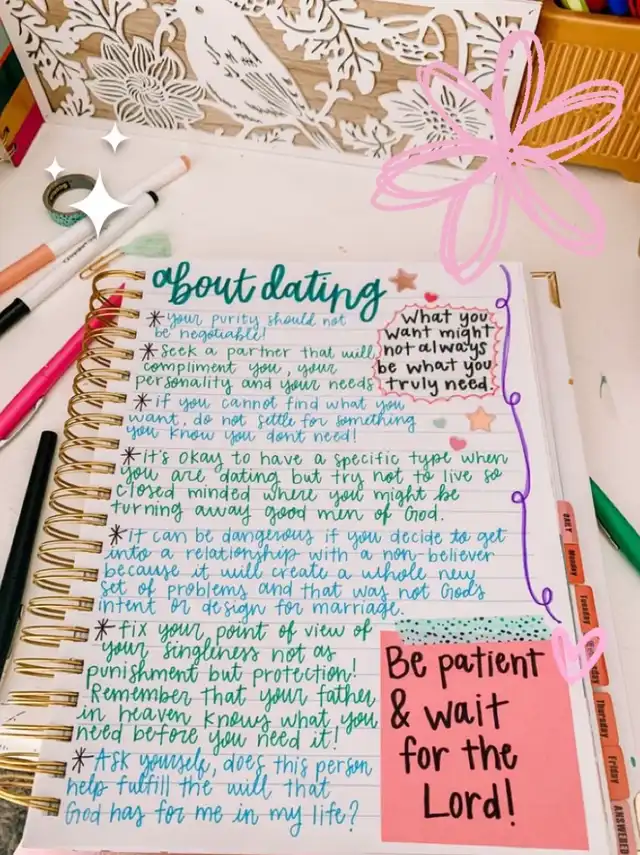 about dating
*your purity should not
be negotiable!
*Seek a partner that will
compliment you, your
personality and your needs
*if you cannot find what you
want, do not settle for something
you know you dont need!
*it's okay to have a specific type when
you are dating but try not to live so
closed minded where you might be
turning away good men of God.
*it can be dangerous if you decide to get
into a relationship with a non-believer
because it will create a whole new
set of problems and that was not Gods
intent or design for marriage.
*fix your point of view of
your singleness not as
punishment but protection!
Remember that your father
in heaven knows what you
need before you need it!
*Ask yourself, does this person
help fulfill the will that
God has for me in my life?
What you
want might
not always
be what you
truly need.
Be patient
& wait
for the
Lord!
DAILY
Monday
Tuesday
Thursday
Friday
ANSWERED